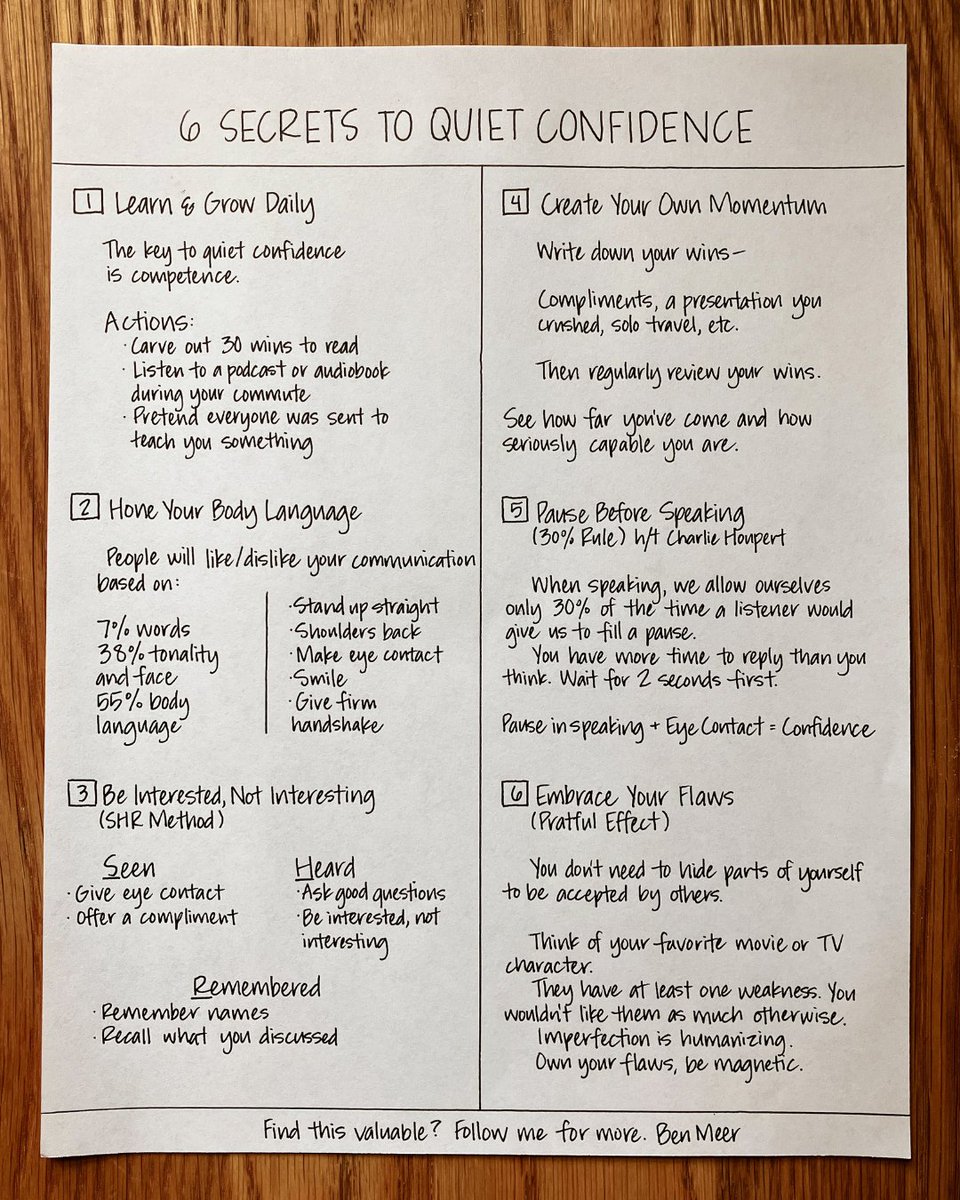 6 SECRETS TO QUIET CONFIDENCE
1 Learn & Grow Daily
The key to quiet confidence
is competence.
Actions:
· Carve out 30 mins to read
· Listen to a podcast or audiobook
during your commute
· Pretend everyone was sent to
teach you something
2 Hone Your Body Language
People will like/dislike your communication
based on:
7% words
38% tonality
and face
55% body
language
· Stand up straight
· Shoulders back
· Make eye contact
· Smile
· Give firm
handshake
3 Be Interested, Not Interesting
(SHR Method)
Seen
· Give eye contact
· Offer a compliment
Heard
· Ask good questions
· Be interested, not
interesting
Remembered
· Remember names
· Recall what you discussed
4 Create Your Own Momentum
Write down your wins—
Compliments, a presentation you
crushed, solo travel, etc.
Then regularly review your wins.
See how far you've come and how
seriously capable you are.
5 Pause Before Speaking
(30% Rule) h/t Charlie Houpert
When speaking, we allow ourselves
only 30% of the time a listener would
give us to fill a pause.
You have more time to reply than you
think. Wait for 2 seconds first.
Pause in speaking + Eye Contact = Confidence
6 Embrace Your Flaws
(Pratful Effect)
You don't need to hide parts of yourself
to be accepted by others.
Think of your favorite movie or TV
character.
They have at least one weakness. You
wouldn't like them as much otherwise.
Imperfection is humanizing.
Own your flaws, be magnetic.
Find this valuable? Follow me for more. Ben Meer